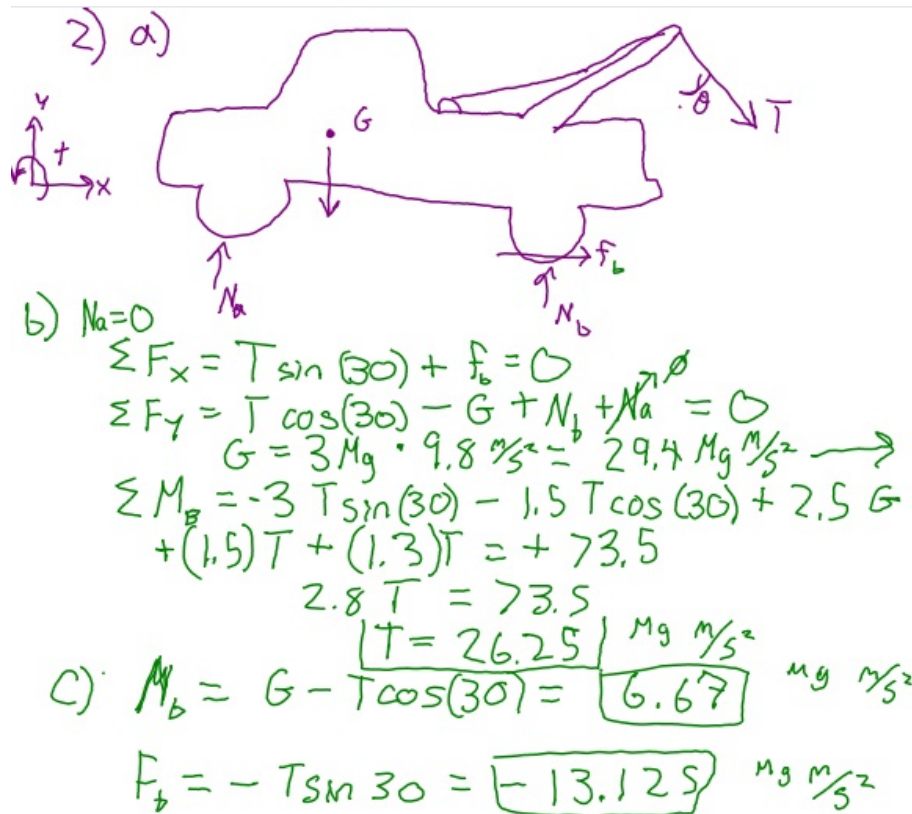 2) a)
y
+
x
G
θ
T
Na
f_b
N_b
b) Na=0
ΣF_x = T sin (30) + f_b = 0
ΣF_y = T cos(30) - G + N_b + Na ↗ 0 = 0
G = 3 Mg · 9.8 m/s² = 29.4 Mg m/s² →
ΣM_B = -3 T sin(30) - 1.5 T cos(30) + 2.5 G
+(1.5)T + (1.3)T = + 73.5
2.8 T = 73.5
T = 26.25 Mg m/s²
c) N_b = G - T cos(30) = 6.67 Mg m/s²
F_b = - T sin 30 = - 13.125 Mg m/s²